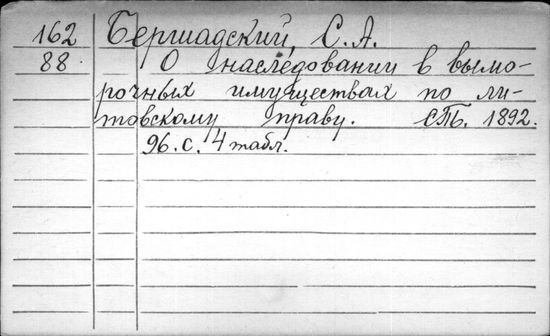 162 Бершадский, С.А.
88 О наследовании в вымо-
рочных имуществах по ли-
товскому праву. СПб. 1892.
96. с. 4 табл.